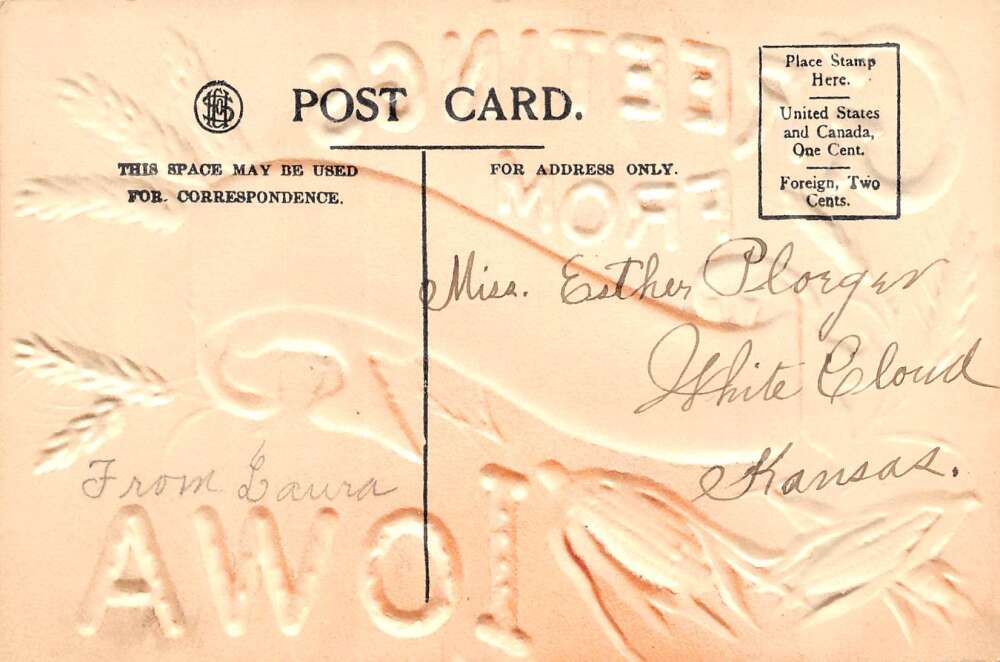 POST CARD.
THIS SPACE MAY BE USED
FOR CORRESPONDENCE.
FOR ADDRESS ONLY.
Place Stamp
Here.
United States
and Canada,
One Cent.
Foreign, Two
Cents.
GREETINGS
FROM
Miss. Esther Ploeger
White Cloud
Kansas.
From Laura
IOWA